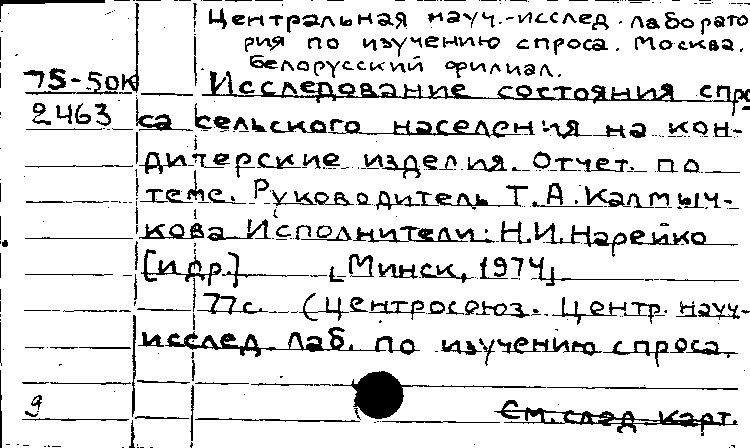 Центральная науч.-исслед. лаборато
рия по изучению спроса. Москва.
Белорусский филиал.
75-50К Исследование состояния спро
2463 са сельского населения на кон-
дитерские изделия. Отчет по
теме. Руководитель Т.А.Калмыч-
кова Исполнители: Н.И.Нарейко
[и др.] [Минск, 1974]
77с. (Центросоюз. Центр. науч-
исслед. лаб. по изучению спроса.
9 См. след. карт.